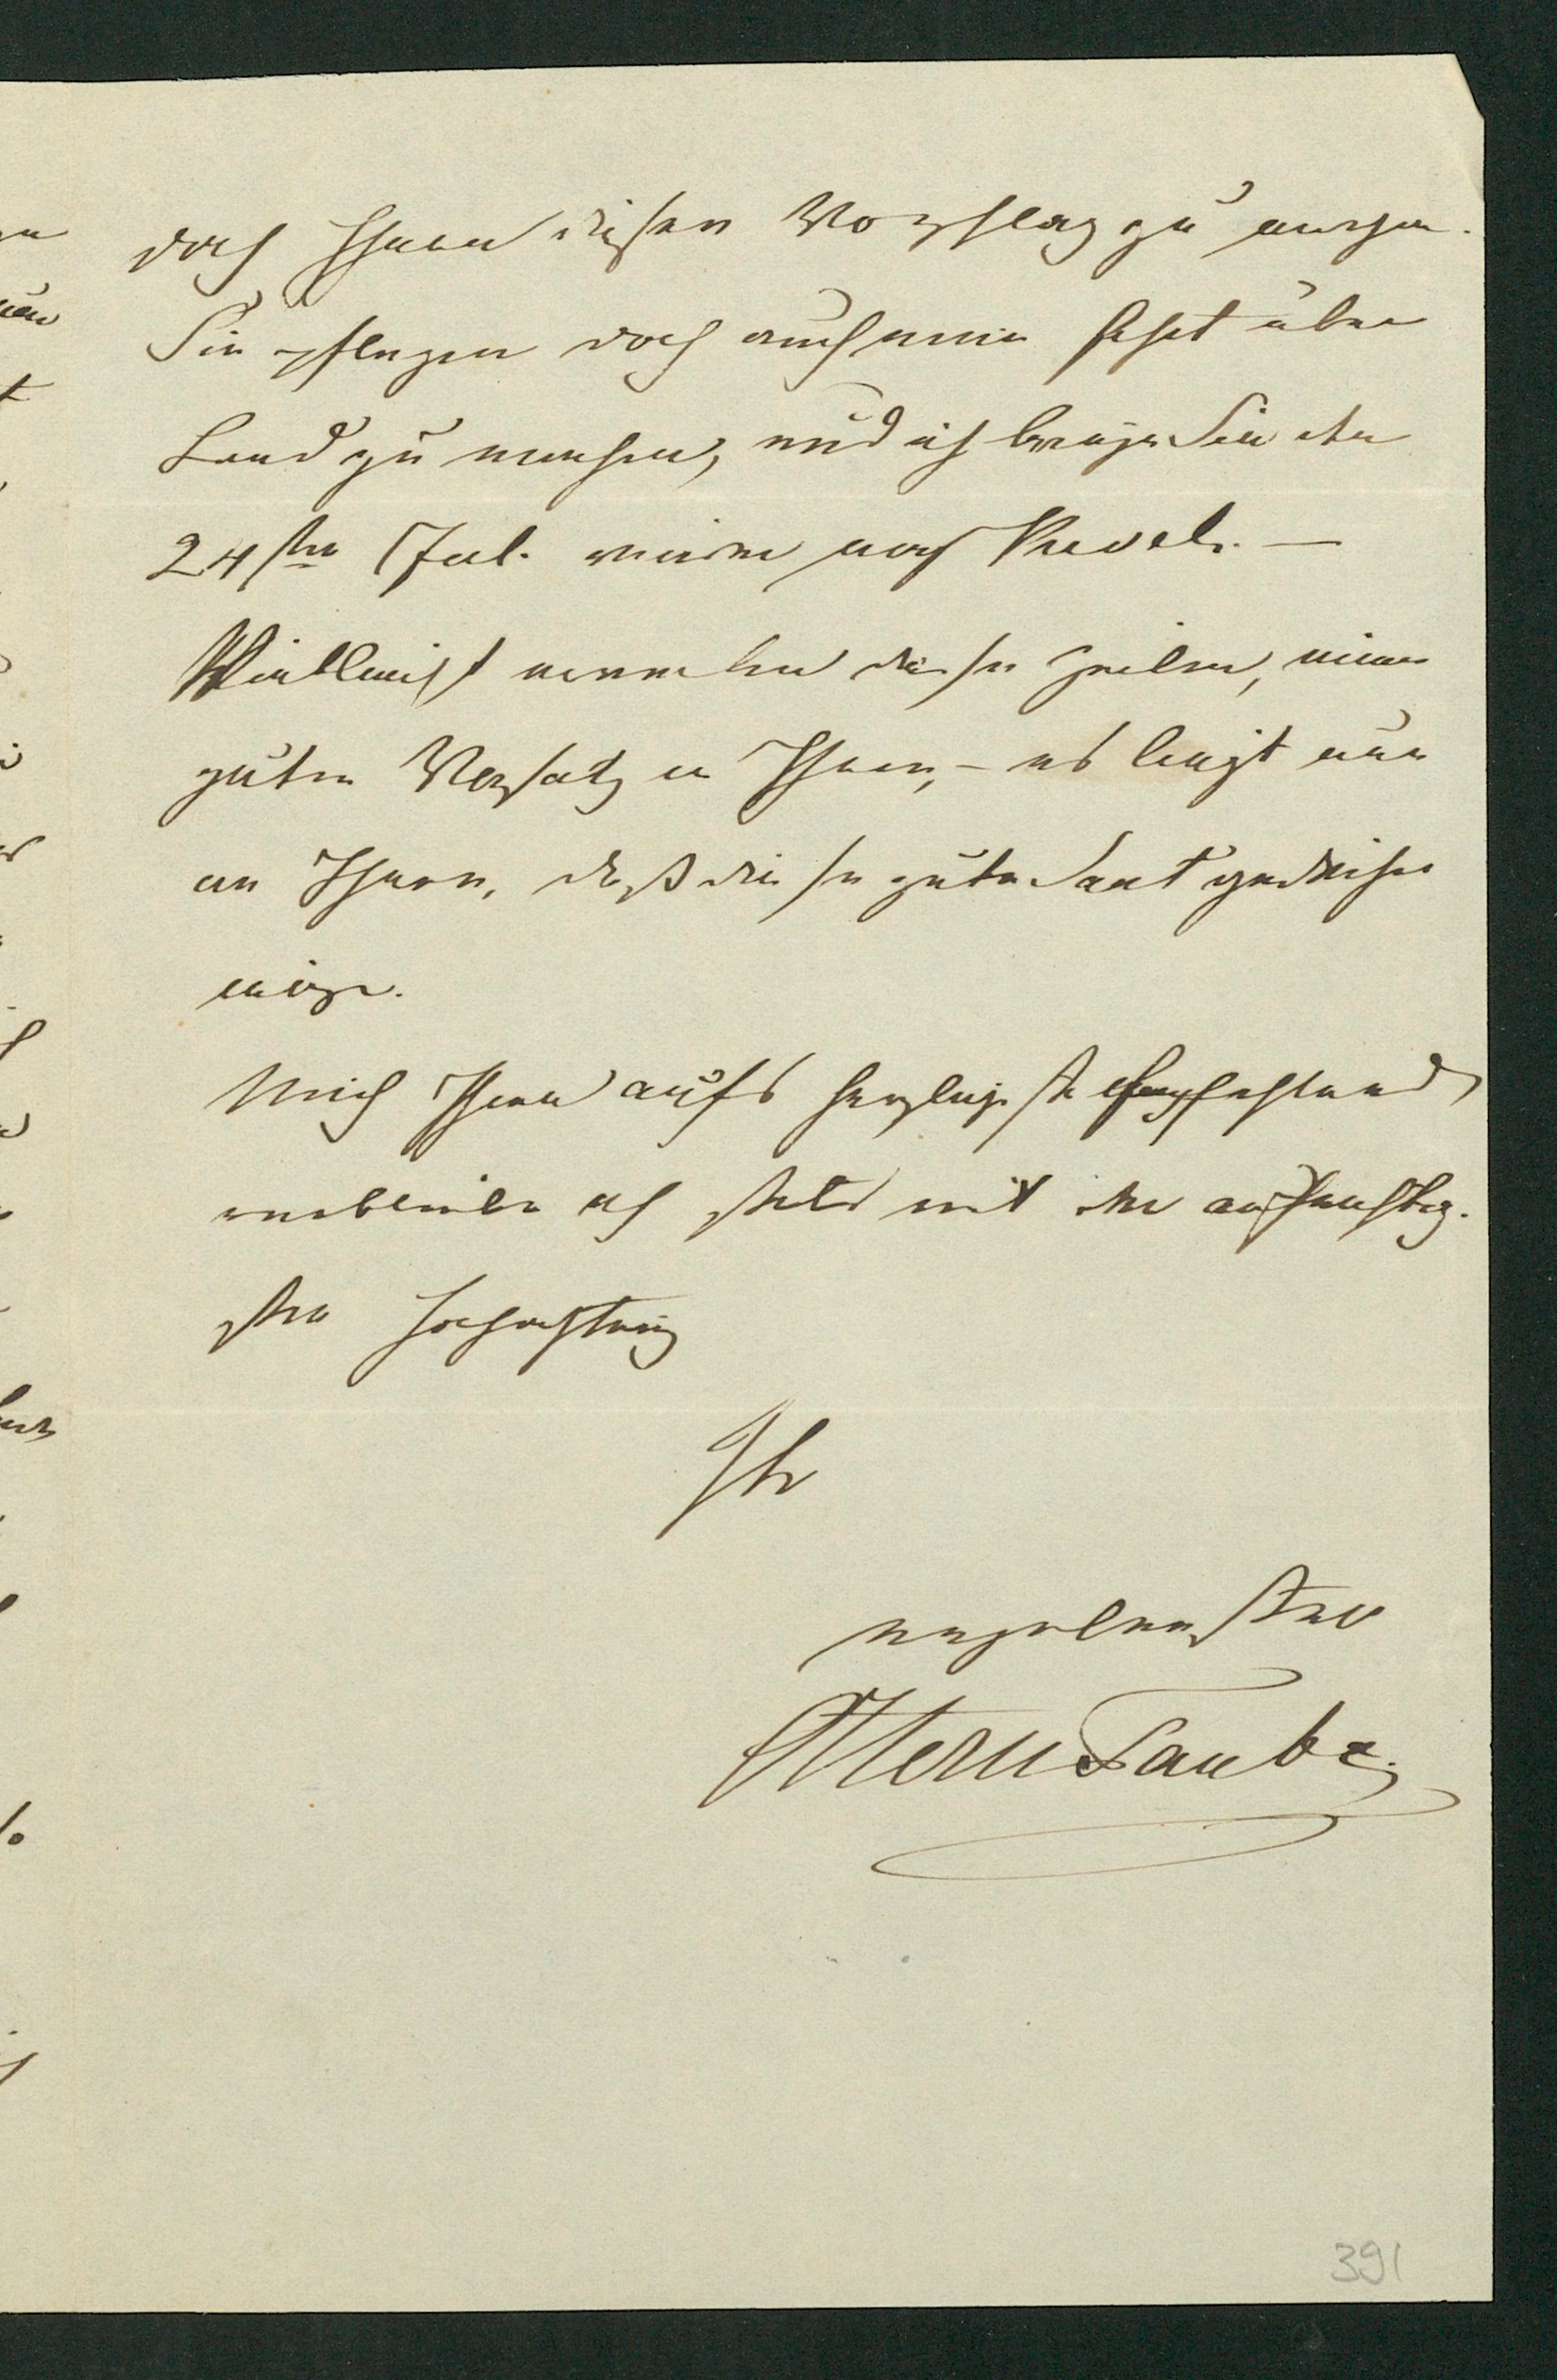 doch Ihnen diesen Vorschlag zu machen.
Sie pflegen doch auch eine Fahrt über
Land zu machen, und ich bringe Sie den
24sten Febr. wieder nach Reval. —
Vielleicht erwecken diese Zeilen, einen
guten Vorsatz in Ihnen, – es liegt nun
an Ihnen, daß diese gute Saat gedeihen
möge.
Mich Ihnen aufs herzlichste empfehlend,
verbleibe ich stets mit der aufrichtig-
sten Hochachtung
Ihr
ergebenster
O Stern Taube.
391